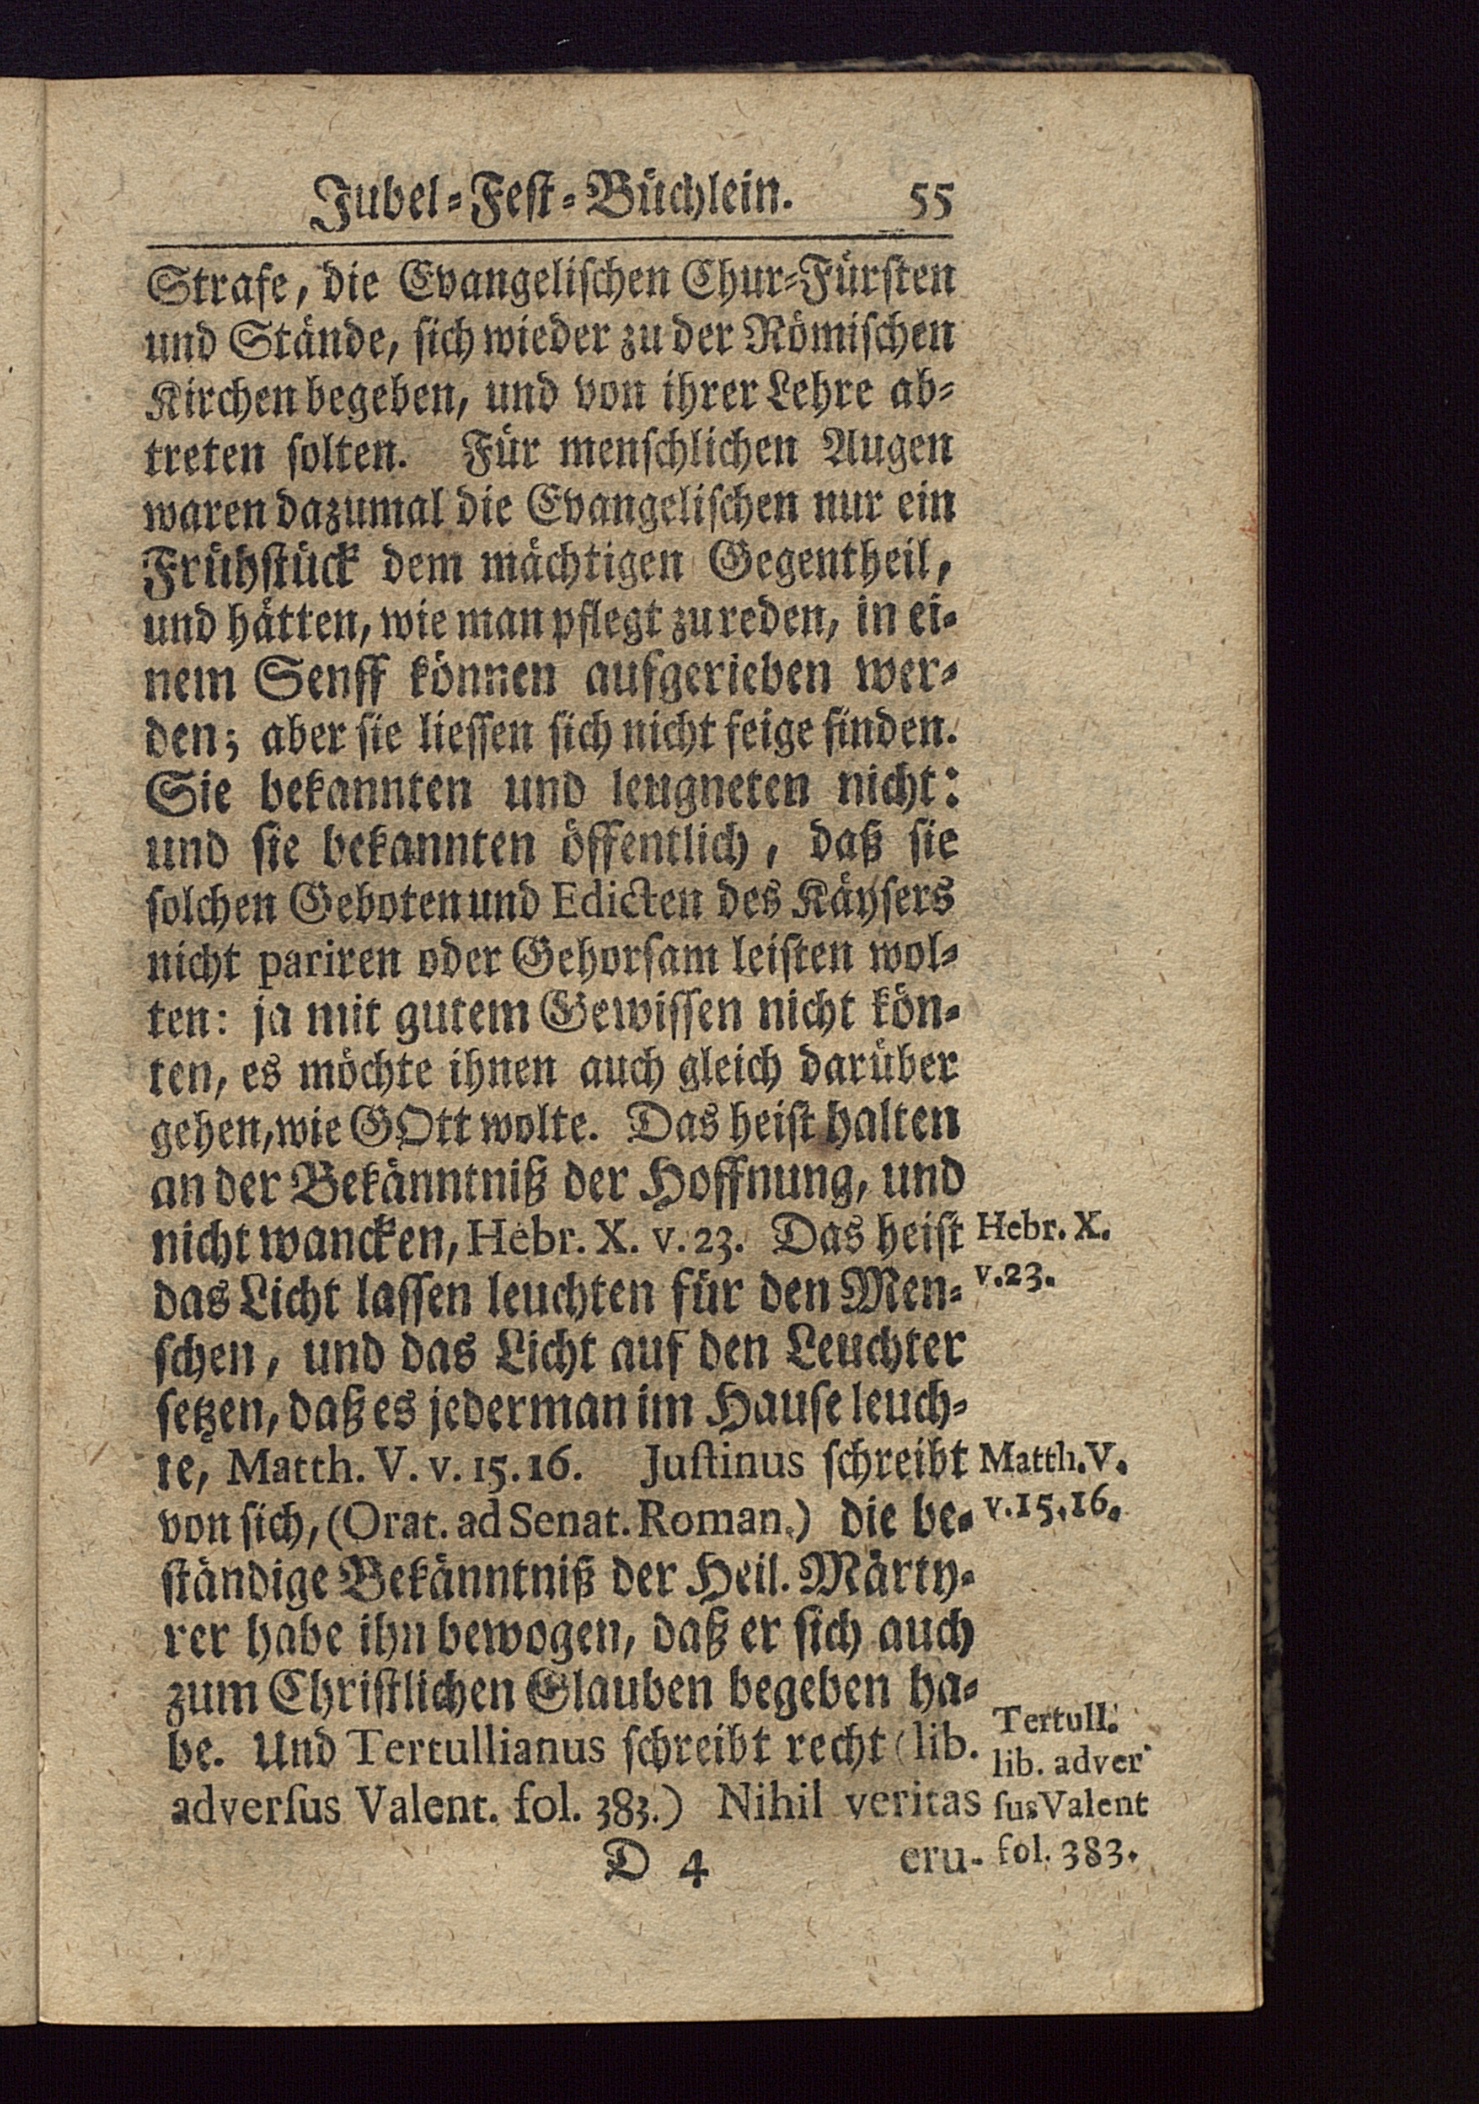 Jubel-Fest-Büchlein. 55
Strafe, die Evangelischen Chur-Fürsten
und Stände, sich wieder zu der Römischen
Kirchen begeben, und von ihrer Lehre ab-
treten solten. Für menschlichen Augen
waren dazumal die Evangelischen nur ein
Frühstück dem mächtigen Gegentheil,
und hätten, wie man pflegt zu reden, in ei-
nem Senff können aufgerieben wer-
den; aber sie liessen sich nicht feige finden.
Sie bekannten und leugneten nicht:
und sie bekannten öffentlich, daß sie
solchen Geboten und Edicten des Käysers
nicht pariren oder Gehorsam leisten wol-
ten: ja mit gutem Gewissen nicht kön-
ten, es möchte ihnen auch gleich darüber
gehen, wie GOtt wolte. Das heist halten
an der Bekänntniß der Hoffnung, und
nicht wancken, Hebr. X. v. 23. Das heist
das Licht lassen leuchten für den Men-
schen, und das Licht auf den Leuchter
setzen, daß es jederman im Hause leuch-
te, Matth. V. v. 15. 16. Justinus schreibt
von sich, (Orat. ad Senat. Roman.) die be-
ständige Bekänntniß der Heil. Märty-
rer habe ihn bewogen, daß er sich auch
zum Christlichen Glauben begeben ha-
be. Und Tertullianus schreibt recht (lib.
adversus Valent. fol. 383.) Nihil veritas
D 4 eru-
Hebr. X.
v. 23.
Matth. V.
v. 15. 16.
Tertull.
lib. adver
sus Valent
fol. 383.